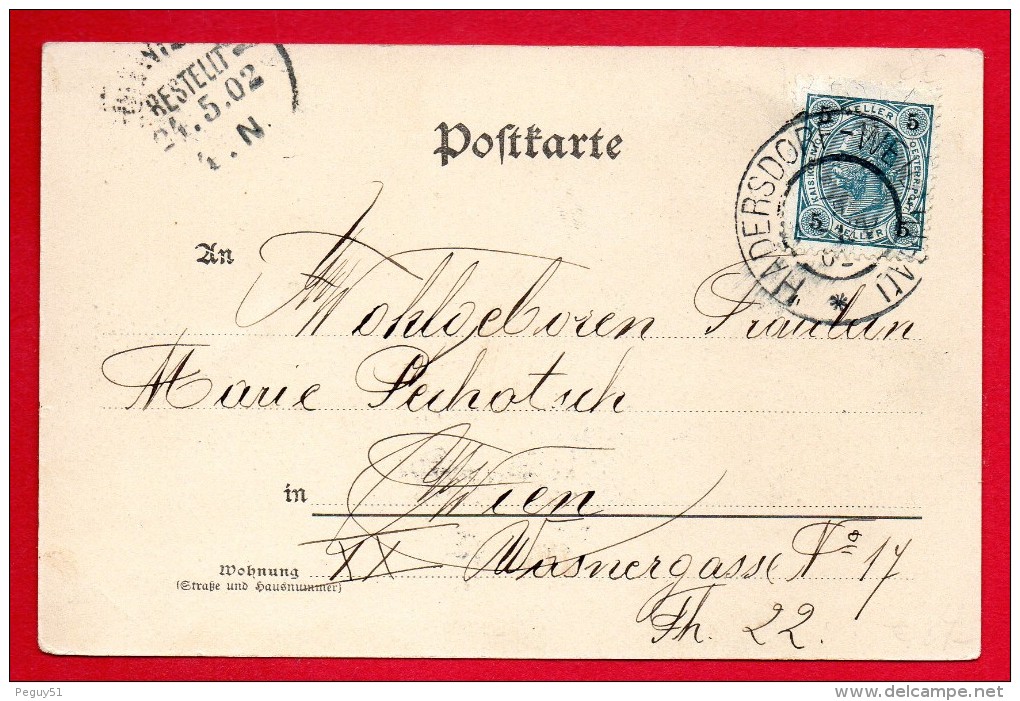 BESTELLT
24.5.02
N.
Postkarte
5 HELLER 5
KAISERL. KÖN. OESTERR. POST
5 HELLER 5
HADERSDORF-WEIDLINGAU
02
*
An Wohlgeboren Fräulein
Marie Pechotsch
in Wien
Wohnung XX Wasnergasse No 17
(Straße und Hausnummer)
Th. 22.
Peguy51
delcampe.net